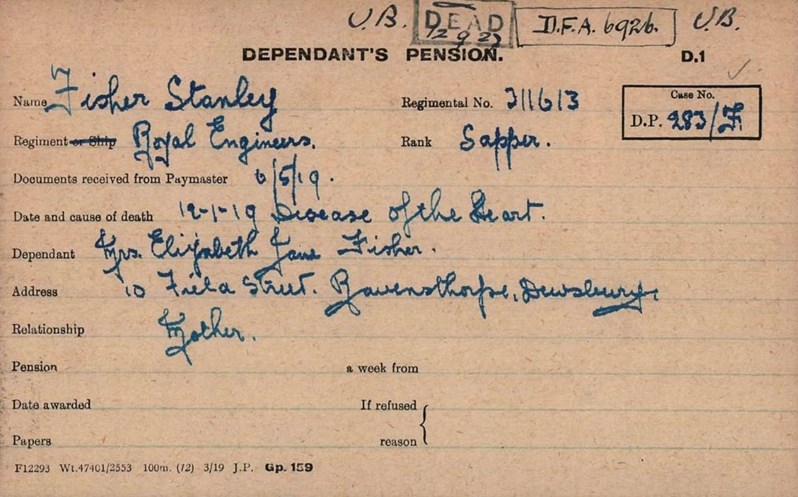 U.B. DEAD 12 9 27 D.F.A. 6926. U.B.
DEPENDANT'S PENSION. D.1
Name Fisher Stanley Regimental No. 311613 Case No.
Regiment or Ship Royal Engineers. Rank Sapper. D.P. 283/F.
Documents received from Paymaster 6/5/19.
Date and cause of death 12-1-19 Disease of the Heart.
Dependant Mrs. Elizabeth Jane Fisher.
Address 10 Field Street. Ravensthorpe. Dewsbury.
Relationship Mother.
Pension a week from
Date awarded If refused
Papers reason
F12293 Wt.47401/2553 100m. (12) 3/19 J.P. Gp. 159